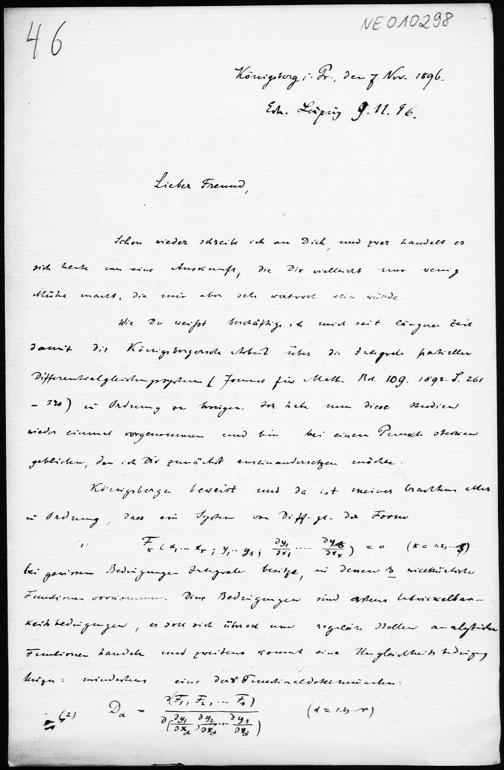 46
NE010298
Königsberg i. Pr., den 7 Nov. 1896.
Erh. Leipzig 9.11.96.
Lieber Freund,
Schon wieder schreibe ich an Dich, und zwar handelt es
sich heute um eine Auskunft, die Dir vielleicht nur wenig
Mühe macht, die mir aber sehr wertvoll sein würde.
Wie Du weißt beschäftige ich mich seit längerer Zeit
damit die Königsbergersche Arbeit über die Integrale partieller
Differentialgleichungssysteme (Journal für Math. Bd. 109. 1892 S. 261
– 340) in Ordnung zu bringen. Ich habe nun diese Studien
wieder einmal vorgenommen und bin bei einem Punkte stecken
geblieben, den ich Dir zunächst auseinandersetzen möchte.
Königsberger beweist und da ist meines Erachtens alles
in Ordnung, dass ein System von Diffgl. der Form
(1) F_k (x_1 ... x_r; y_1 ... y_s; ∂y_1/∂x_1 ... ∂y_s/∂x_r) = 0 (k = 1.2 ... s)
bei gewissen Bedingungen Integrale besitze, in denen s willkürliche
Funktionen vorkommen. Diese Bedingungen sind erstens Entwickelbar-
keitsbedingungen, es soll sich überall um reguläre Stellen analytischer
Funktionen handeln und zweitens kommt eine Ungleichheitsbedingung
hinzu: mindestens eine der Funktionaldeterminanten
(2) D_α = ∂(F_1, F_2, ... F_s) / ∂(∂y_1/∂x_α, ∂y_2/∂x_α ... ∂y_s/∂x_α) (α = 1.2 ... r)